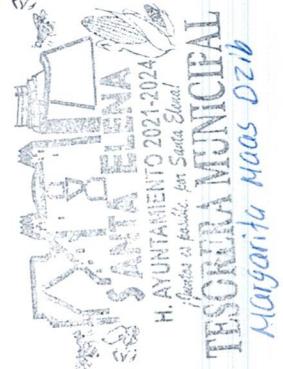 SANTA ELENA
H. AYUNTAMIENTO 2021-2024
¡Juntos es posible por Santa Elena!
TESORERIA MUNICIPAL
Margarita Maas Dzib